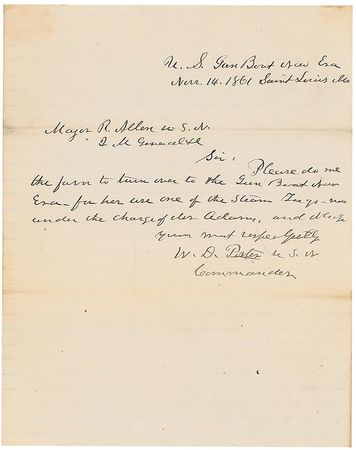 U. S. Gun Boat New Era
Novr. 14. 1861 Saint Louis Mo
Major R. Allen U. S. N.
Q M General &c
Sir,
Please do me
the favn to turn over to the Gun Boat New
Era - for her use one of the Steam Tugs - now
under the charge of Mr Adams, and oblige
Your most respectfully
W. D. Porter U S N
Commander